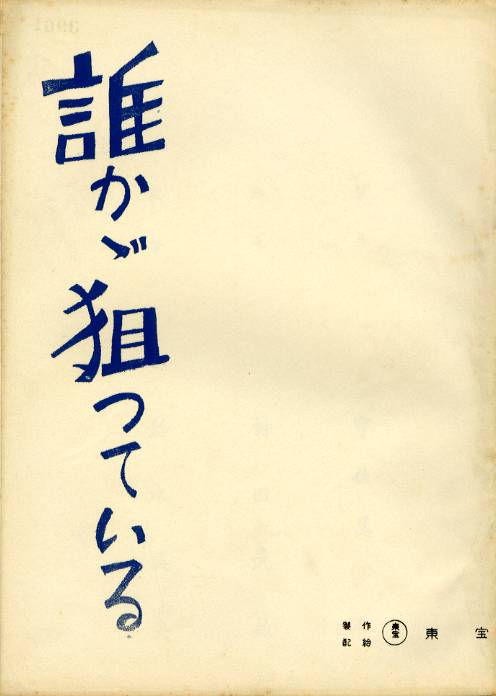 誰かゞ狙つている
製作
配給
東宝
東宝